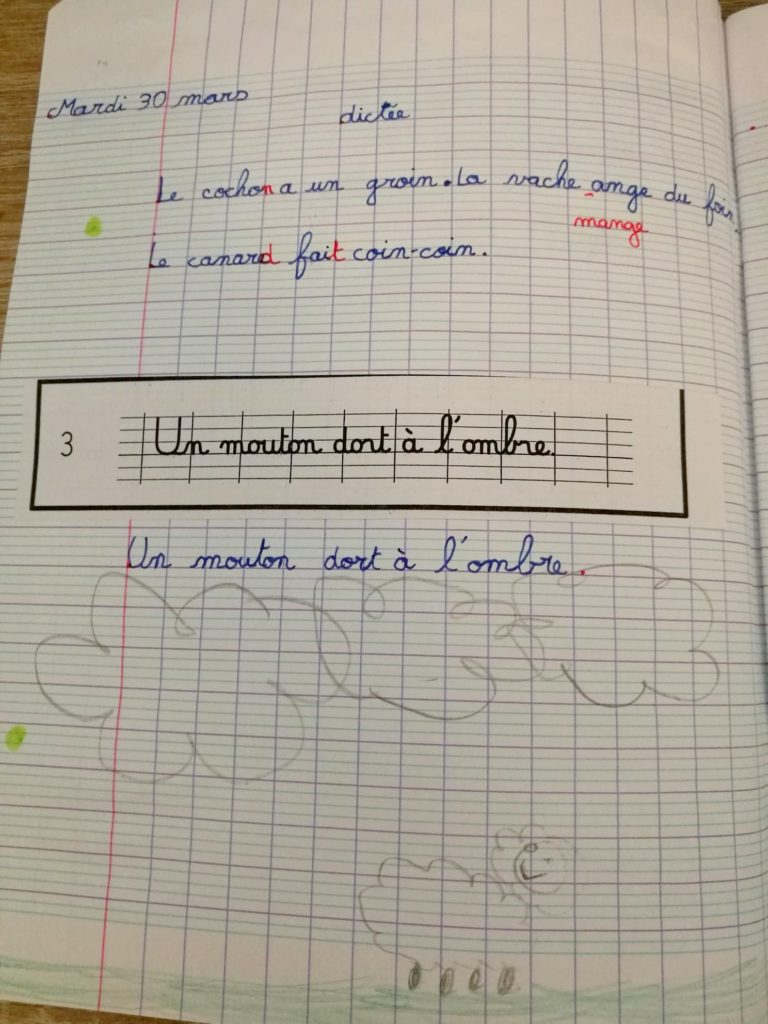 Mardi 30 mars
dictée
Le cochon a un groin. La vache ange du foin.
mange
Le canard fait coin-coin.
3 Un mouton dort à l'ombre.
Un mouton dort à l'ombre.